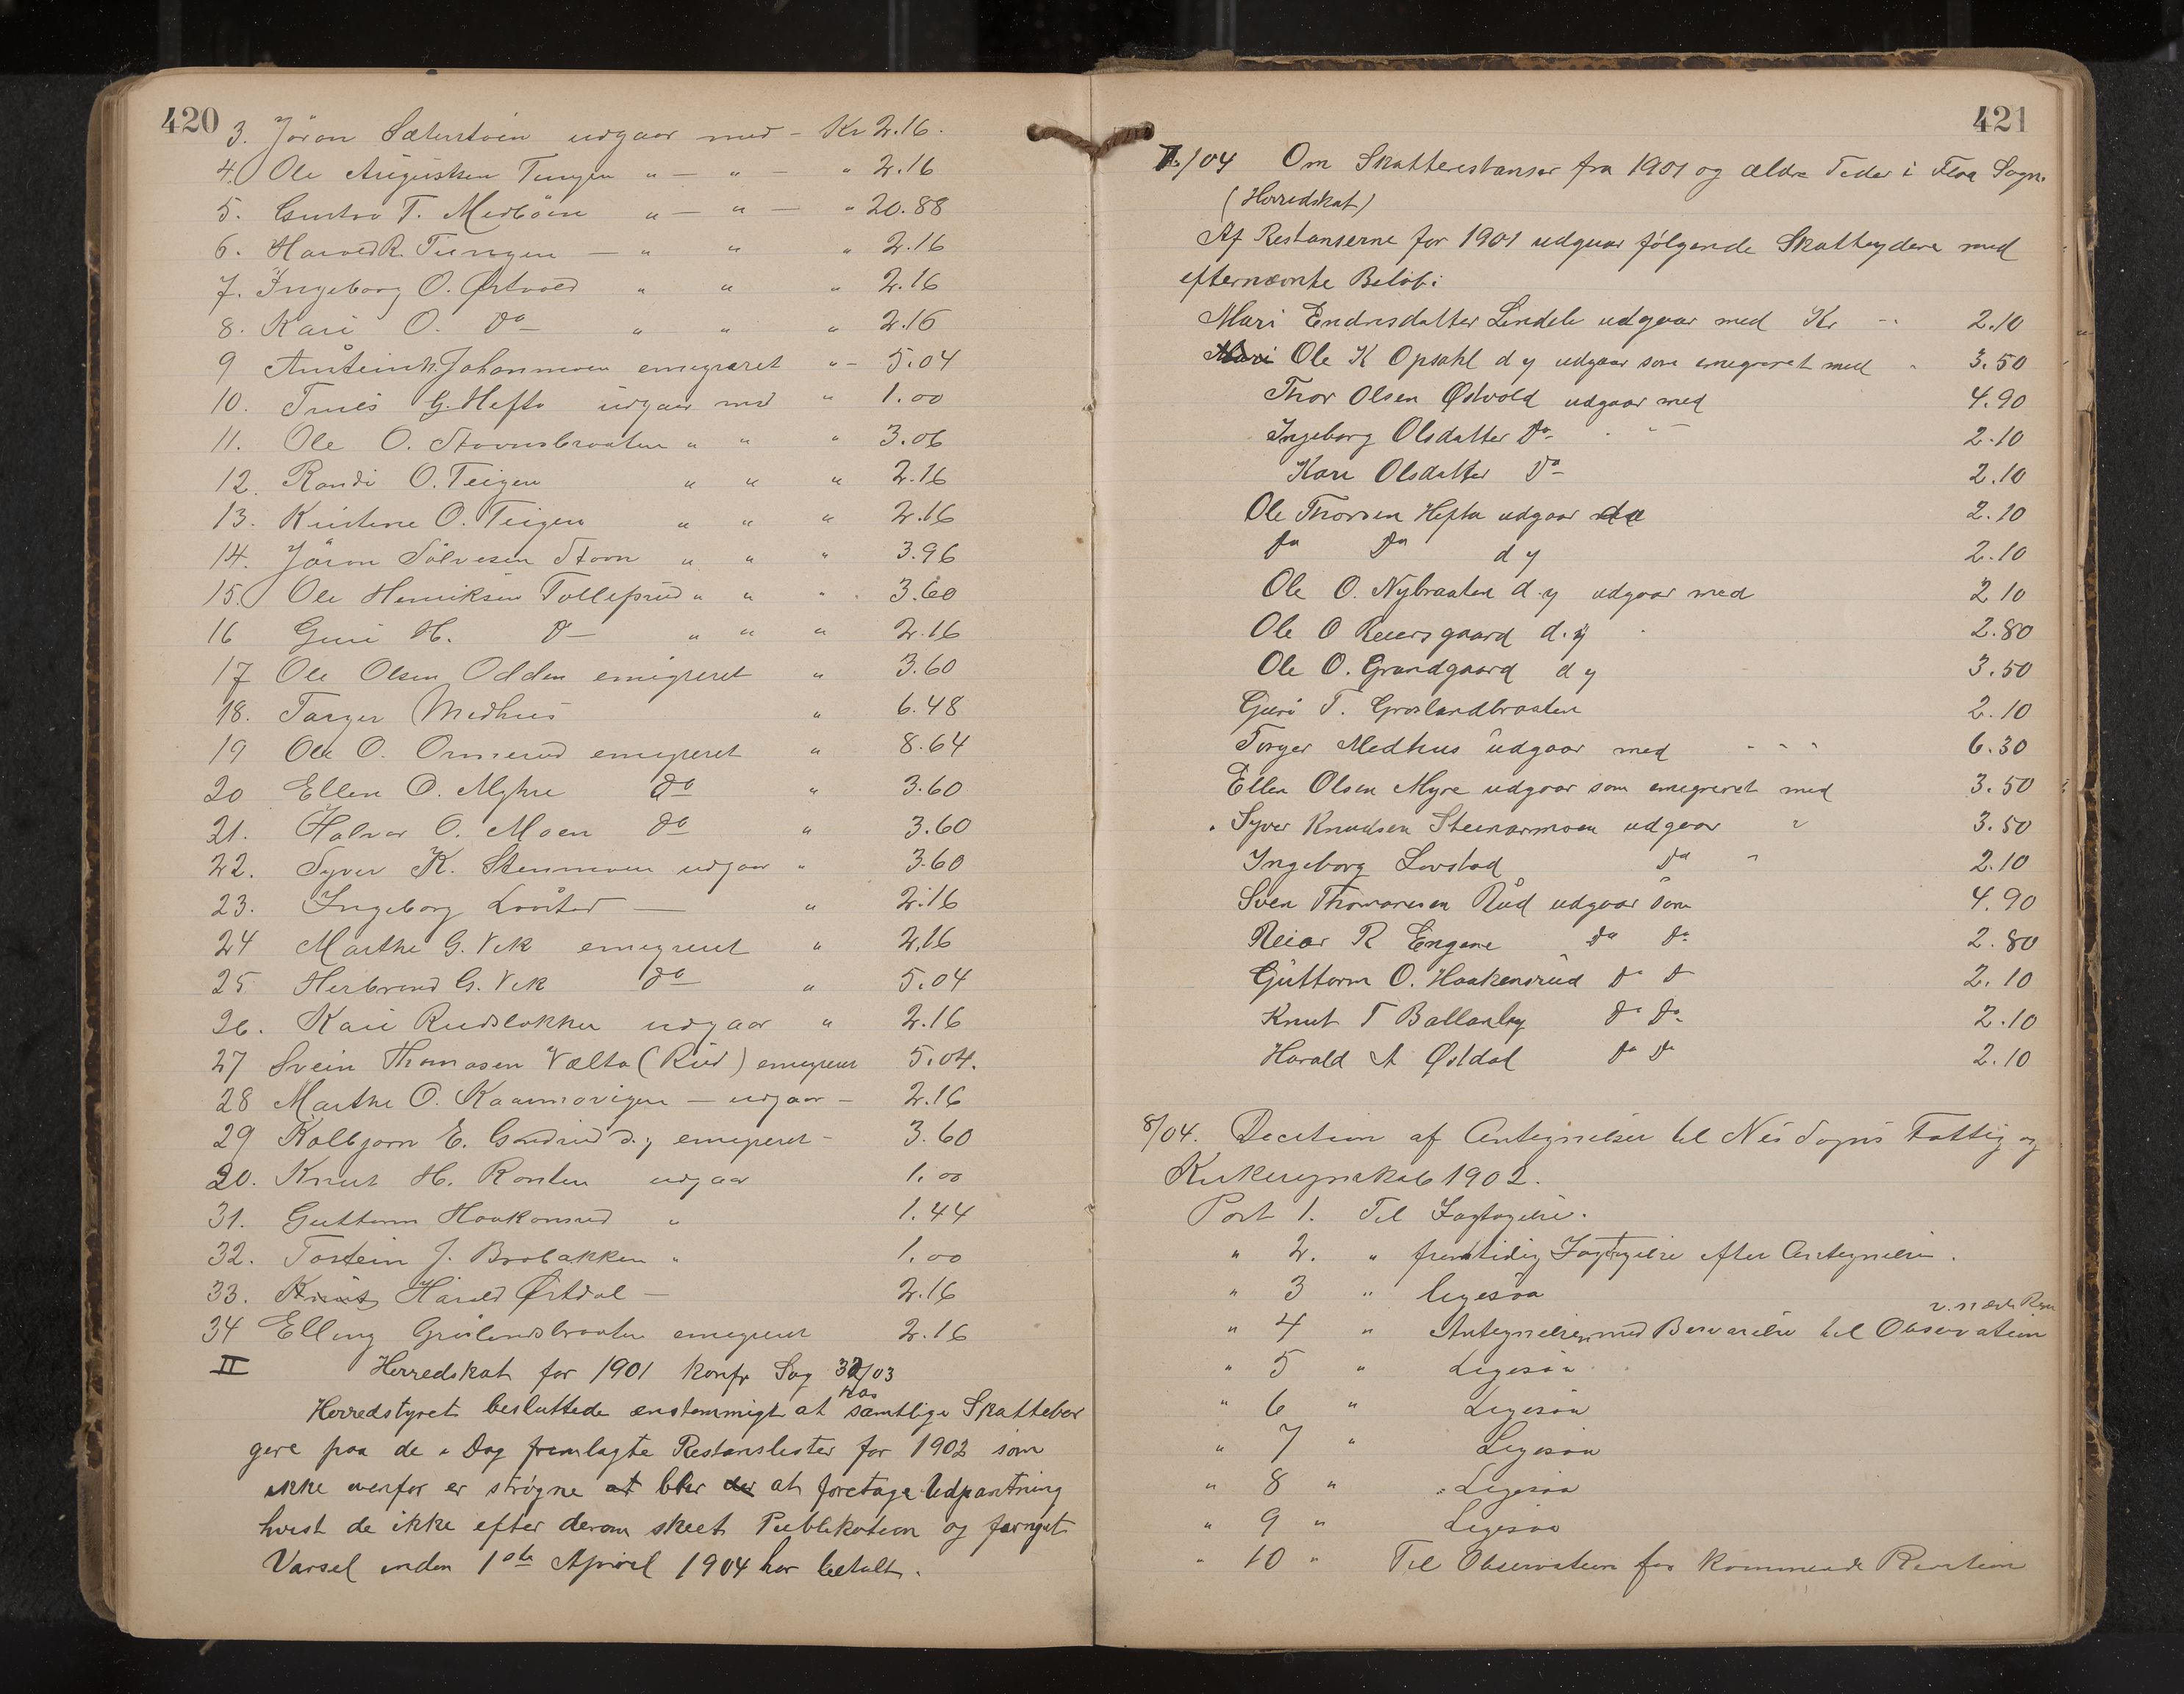 420
3. Jöron Sæterstøen udgaar med - Kr 2.16.
4. Ole Augustsen Tungen " — " — " 2.16
5. Gustav T. Medbøen " — " — " 20.88
6. Harald R. Tungen — " " " 2.16
7. Ingeborg O. Østvold " " " 2.16
8. Kari O. Do " " " 2.16
9 Anstein Johannmoen emigreret " - 5.04
10. Truls G. Hefte udgaar med " 1.00
11. Ole O. Stavnsbraaten " " " 3.06
12. Randi O. Teigen " " " 2.16
13. Kristine O. Teigen " " " 2.16
14. Jöron Sølvesen Stavn " " " 3.96
15. Ole Henriksen Tollefsrud " " " 3.60
16 Guri H. D— " " " 2.16
17 Ole Olsen Odden emigreret " 3.60
18. Torger Medhus " 6.48
19 Ole O. Ormerud emigreret " 8.64
20 Ellen O. Myhre do " 3.60
21. Halvor O. Moen do " 3.60
22. Syver K. Stenmoen udgaar " 3.60
23. Ingeborg Lovsted — " 2.16
24 Marthe G. Vik emigreret " 2.16
25 Herbrand G. Vik do " 5.04
26. Kari Rudslokken udgaar " 2.16
27 Svein Thomasen Vælta (Rud) emigreret 5.04.
28 Marthe O. Kaarmovigen — udgaar — 2.16
29 Kolbjørn E. Gudsrud d.y emigreret - 3.60
20. Knut H. Ronten udgaar 1.00
31. Guttorm Haakonsrud " 1.44
32. Tostein J. Brobakken " 1.00
33. Knut Harald Østdal — 2.16
34 Elling Grøslandsbraaten emigreret 2.16
II Herredskat for 1901 konfr Sag 32/03
Herredstyret besluttede enstemmigt at hos samtlige Skattebor
gere paa de i Dag fremlagte Restanslister for 1902 som
ikke ovenfor er strøgne at blir der at foretage Udpantning
hvist de ikke efter derom skeet Publikation og fornøt
Varsel inden 1ste April 1904 har betalt.
421
7/04 Om Skatterestanser fra 1901 og ældre Tider i Flaa Sogn.
(Herredskat)
Af Restanserne for 1901 udgaar følgende Skatteydere med
efternævnte Beløb:
Mari Endresdatter Lindeli udgaar med Kr - 2.10
Mari Ole K Opsahl d y udgaar som emegreret med " 3.50
Thor Olsen Østvold udgaar med 4.90
Ingeborg Olsdatter Do 2.10
Kari Olsdatter Do 2.10
Ole Thorsen Hefte udgaar da 2.10
Do Do d y 2.10
Ole O. Nybraaten d.y udgaar med 2 10
Ole O Reiersgaard d.y 2.80
Ole O. Grandgaard d y 3.50
Guri T. Groslandbraaten 2.10
Torger Medhus udgaar med - - - 6.30
Ellen Olsen Myre udgaar som emegreret med 3.50
Syver Knudsen Steinarmoen udgaar " 3.50
Ingeborg Lovstad Do " 2.10
Sven Thomasesen Rud udgaar som 4.90
Reiar R Engene Do Do 2.80
Guttorm O. Haakensrud D D 2.10
Knut T Ballanby Do Do 2.10
Harald A Østdal Do Do 2.10
8/04. Decition af Antegnelser til Nes Sogns Fattig og
Kirkeregnskab 1902.
Post 1. Til Iagtagelse.
" 2. " fremtidig Iagtagelse efter Antegnelsen.
" 3 " ligesaa
" 4 " Antegnelsen med Besvarelse til Observation v. næste Revn
" 5 " Ligesaa
" 6 " Ligesaa
" 7 " Ligesaa
" 8 " Ligesaa
" 9 " Ligesaa
" 10 " Til Observation for kommende Revition